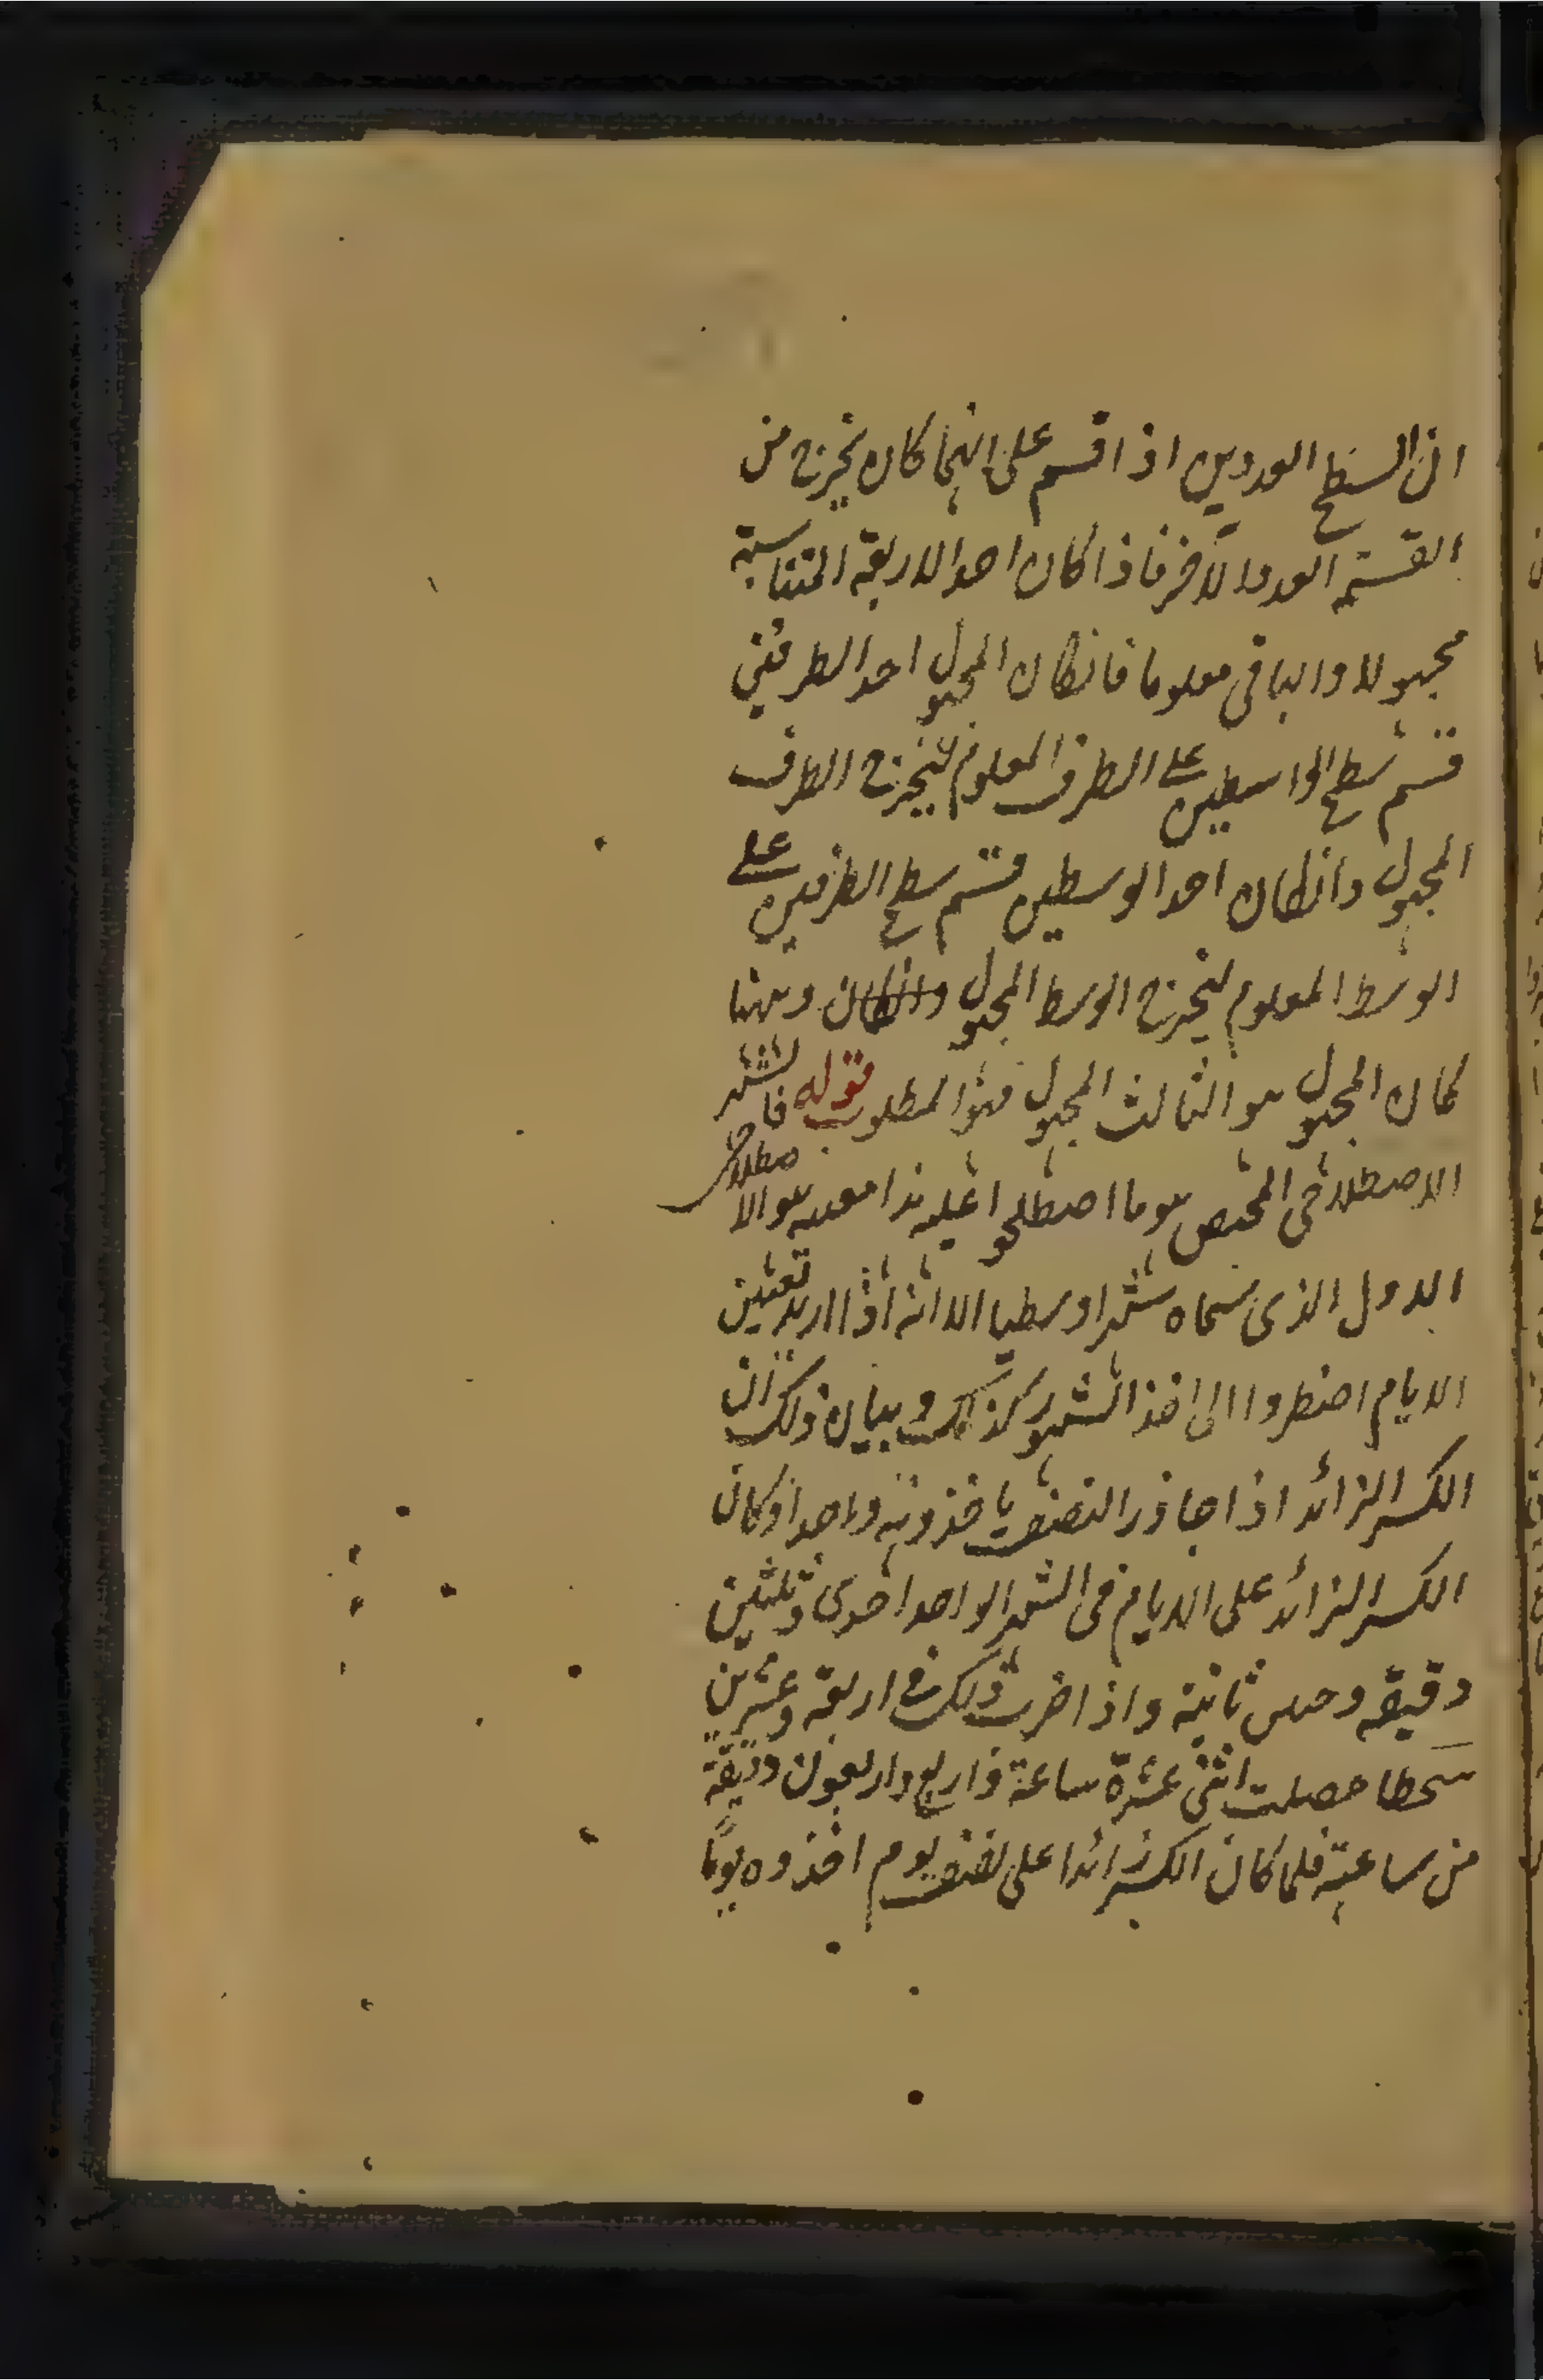 ان السطح العددين اذا قسم على ايهما كان يخرج من
القسمة العدد الآخر فاذا كان احد الاربعة المتناسبة
مجهولا والباقى معلوما فانكان المجهول احد الطرفين
قسم سطح الواسطين على الطرف المعلوم ليخرج الطرف
المجهول وانكان احد الوسطين قسم سطح الطرفين على
الوسط المعلوم ليخرج الوسط المجهول وانكان وههنا
لما كان المجهول هو الثالث المجهول فهو المطلوب قوله فالشهر
الاصطلاحى المختص هو ما اصطلحوا عليه هذا هو الاصطلاح
الاول الذى سماه شهرا وسطيا الا انه اذا اريد تعيين
الايام اضطروا الى اخذ الشهور كذلك وبيان ذلك ان
الكسر الزائد اذا جاوز النصف ياخذونه واحدا وكان
الكسر الزائد على الايام فى الشهر الواحد احدى وثلثين
دقيقه وخمس ثانية واذا ضرب ذلك فى اربعة وعشرين
منحطا حصلت اثنى عشرة ساعة واربع واربعون دقيقة
من ساعة فلما كان الكسر زائدا على نصف يوم اخذوه يومًا